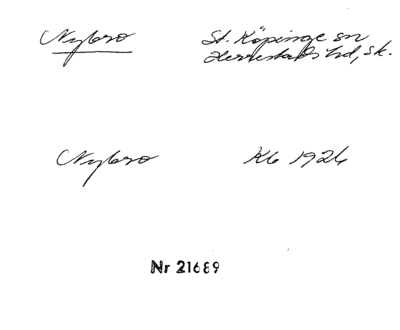 Nybro St. Köpinge sn
Herrestads hd, Sk.
Nybro Kb 1926
Nr 21689